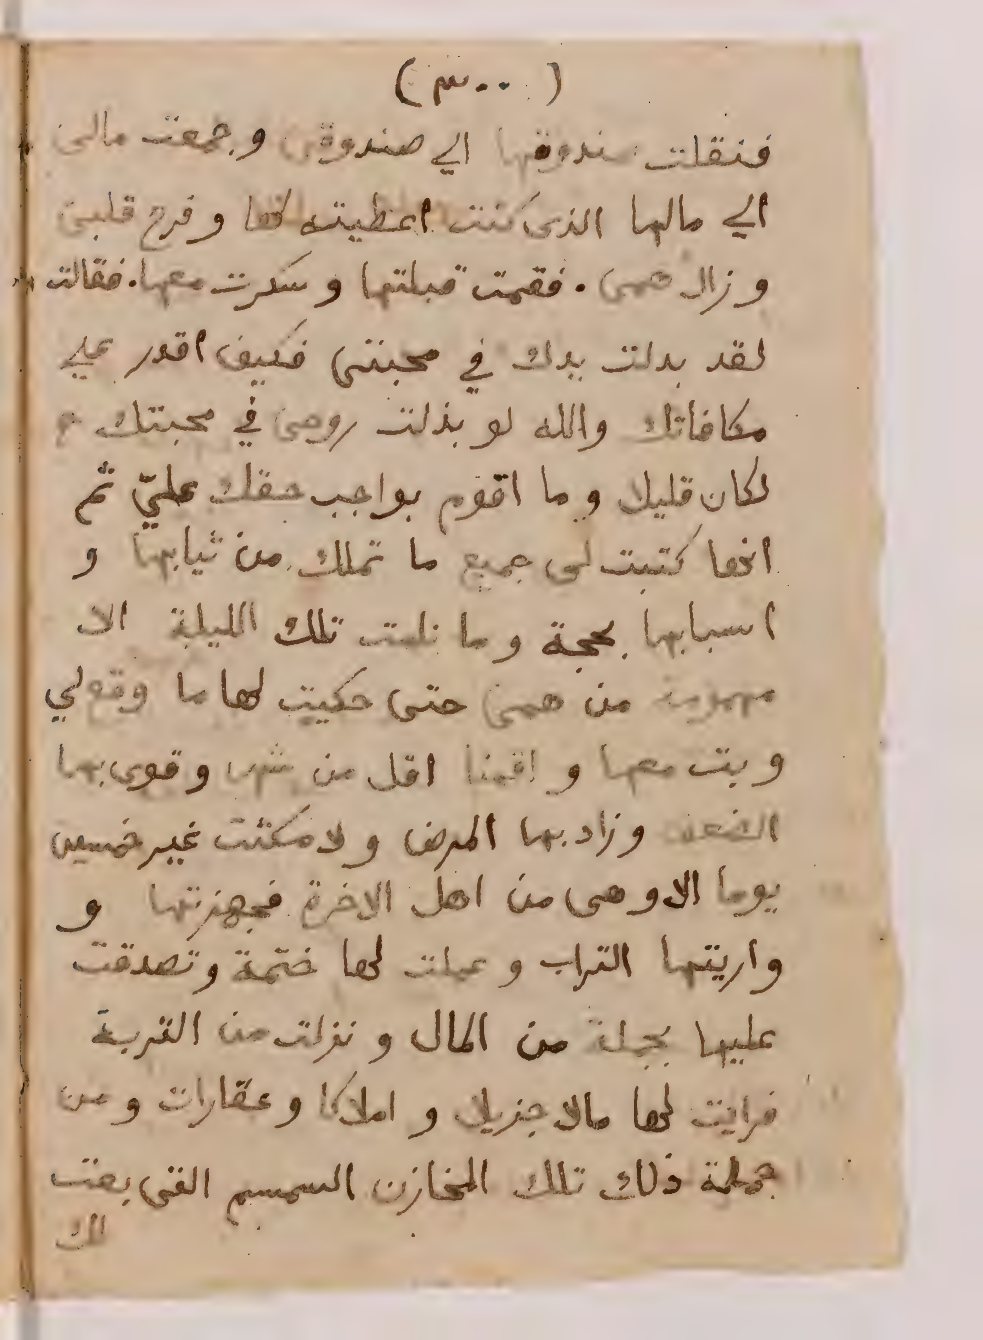 (٣٠٠)
فنقلت صندوقها الي صندوقى و جمعت مالى
الي مالها الذى كنت اعطيته لها و فرح قلبى
و زال همى . فقمت قبلتها و سكرت معها . فقالت
لقد بدلت يدك في محبتى فكيف اقدر علي
مكافاتك والله لو بذلت روحى في محبتك
لكان قليلا و ما اقوم بواجب حقك عليّ ثم
انها كتبت لى جميع ما تملك من ثيابها و
اسبابها بحجة و ما نامت تلك الليلة الا
مهمومة من همى حتى حكيت لها ما وقع لي
و بت معها و اقمنا اقل من شهر و قوى بها
الضعف و زاد بها المرض و لا مكثت غير خمسين
يوما الا و هى من اهل الاخرة فجهزتها و
واريتها التراب و عملت لها ختمة و تصدقت
عليها بجملة من المال و نزلت من التربة
فرايت لها مالا جزيلا و املاكا و عقارات و من
جملة ذلك تلك المخازن السمسم التى بعت
لك